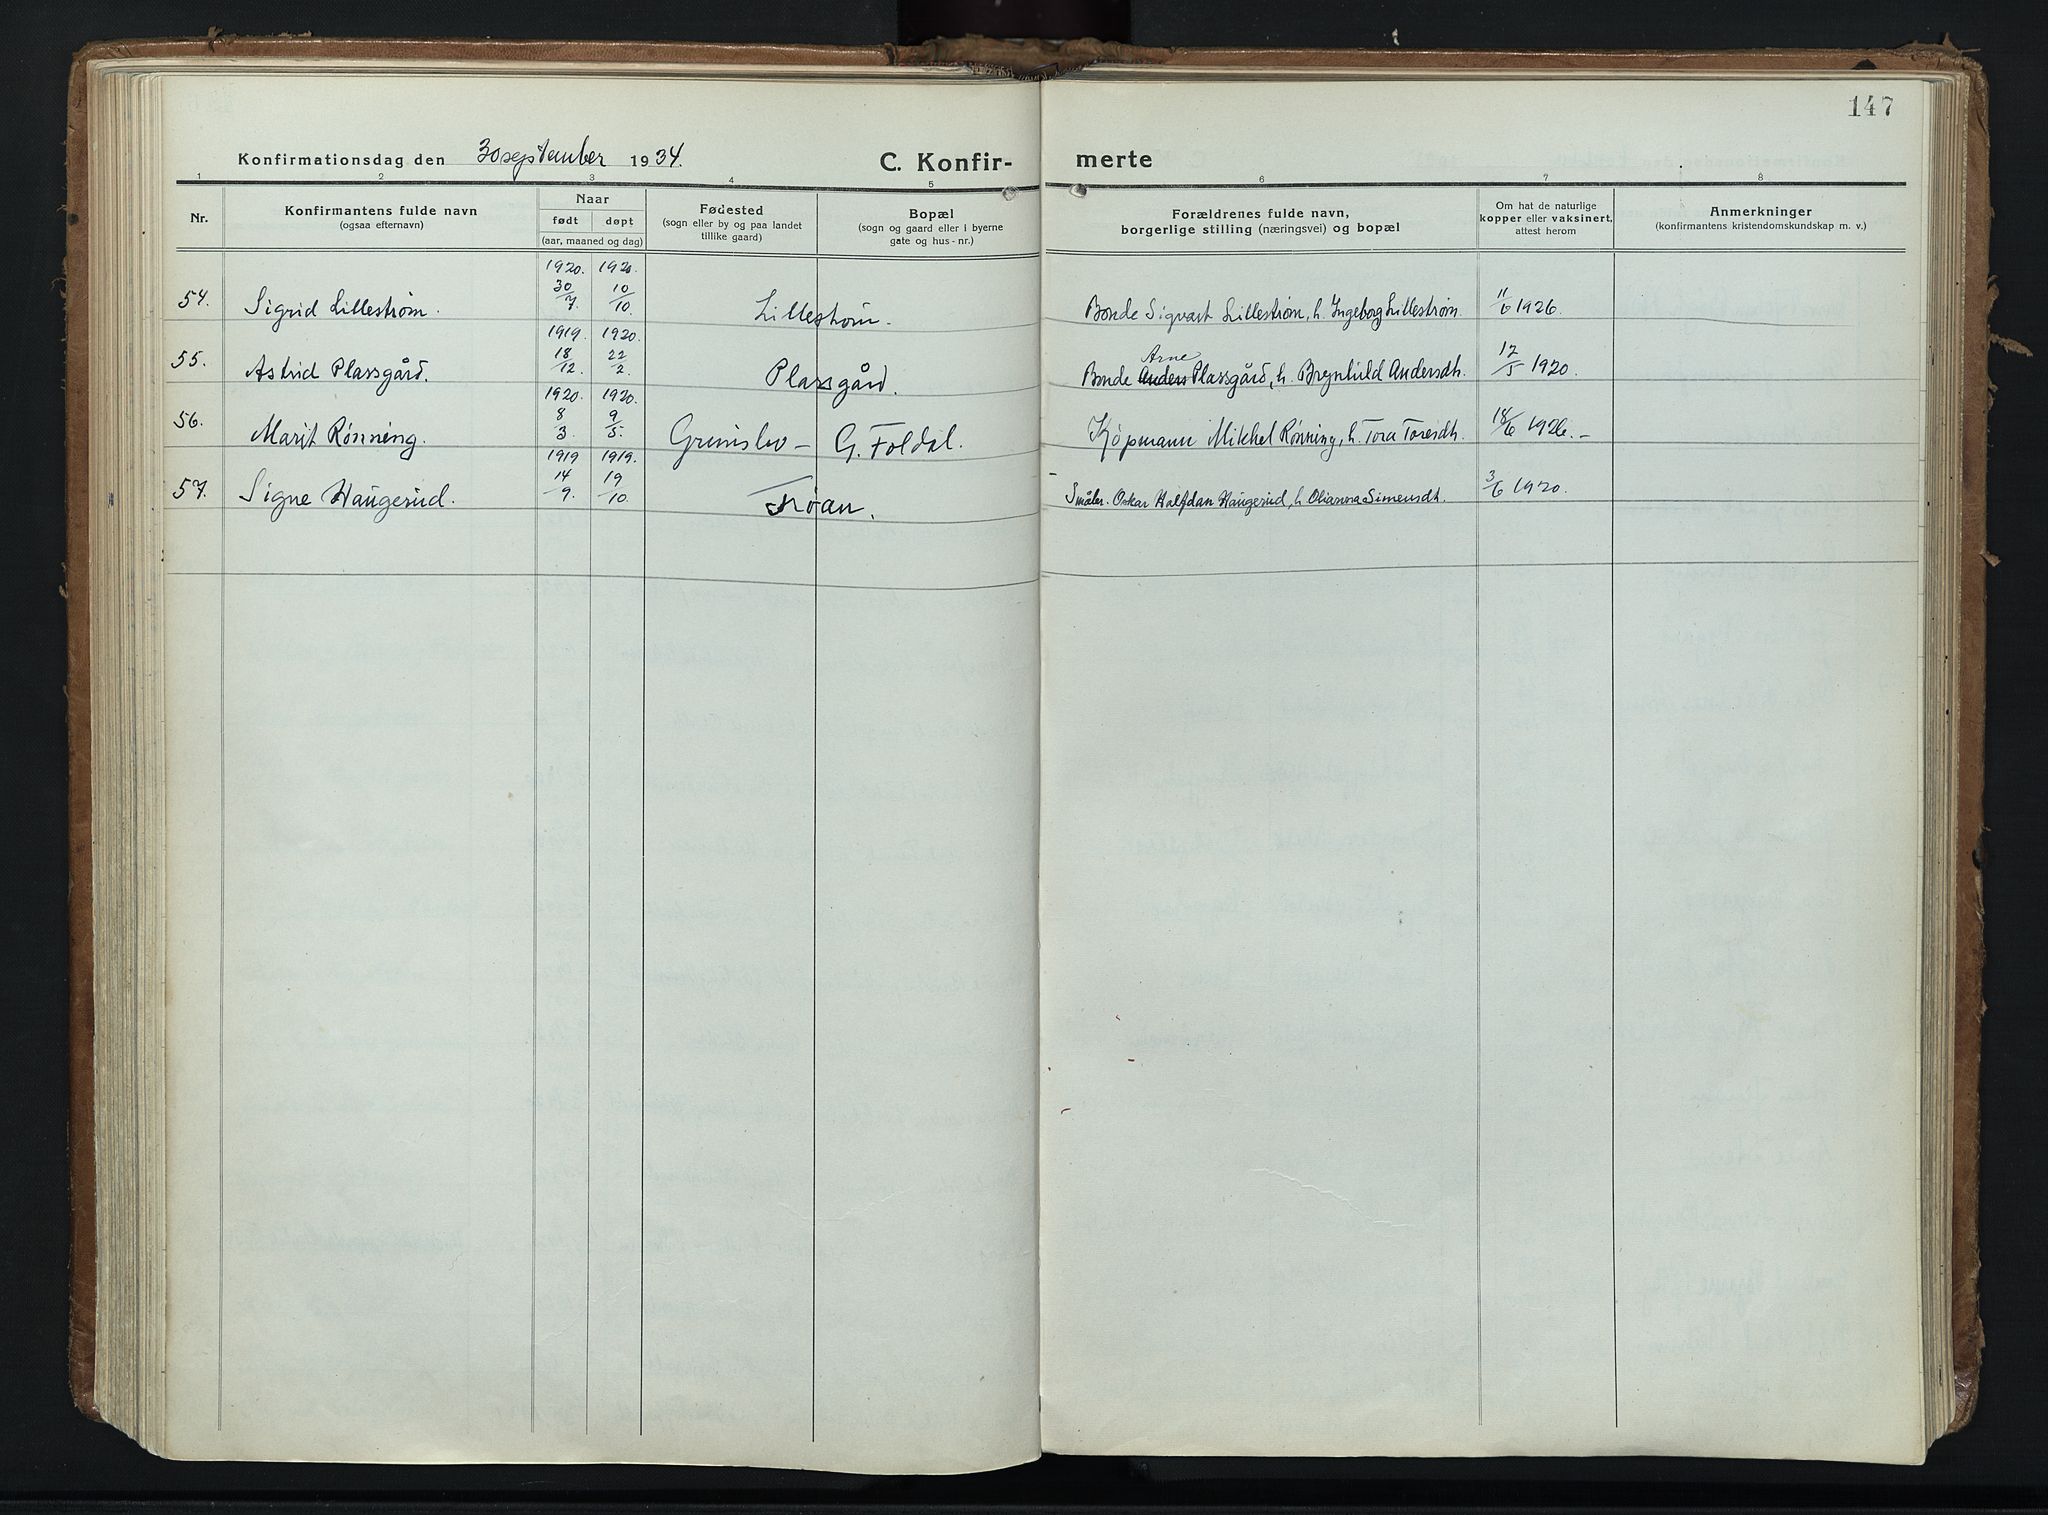 147
Konfirmationsdag den 30 september 1934.
C. Konfirmerte
1 2 3 4 5 6 7 8
Nr.
Konfirmantens fulde navn
(ogsaa efternavn)
Naar
født døpt
(aar, maaned og dag)
Fødested
(sogn eller by og paa landet
tillike gaard)
Bopæl
(sogn og gaard eller i byerne
gate og hus-nr.)
Forældrenes fulde navn,
borgerlige stilling (næringsvei) og bopæl
Om hat de naturlige
kopper eller vaksinert,
attest herom
Anmerkninger
(konfirmantens kristendomskundskap m. v.)
54. Sigrid Lillestrøm. 1920. 30/7. 1920. 10/10. Lillestrøm. Bonde Sigvart Lillestrøm, h. Ingeborg Lillestrøm 11/6 1926.
55. Astrid Plassgård. 1919. 18/12. 1920. 22/2. Plassgård. Bonde Anders Arne Plassgård, h. Brynhild Andersdt. 12/5 1920.
56. Marit Rønning. 1920. 8/3. 1920. 9/5. Grimsbu – G. Foldal. Kjöpmann Mikkel Rønning, h. Tora Toresdt. 18/6 1926.–
57. Signe Haugerud. 1919 14/9. 1919. 19/10. Trøan. Småbr. Oskar Halfdan Haugerud, h. Olianna Simensdt. 3/6 1920.